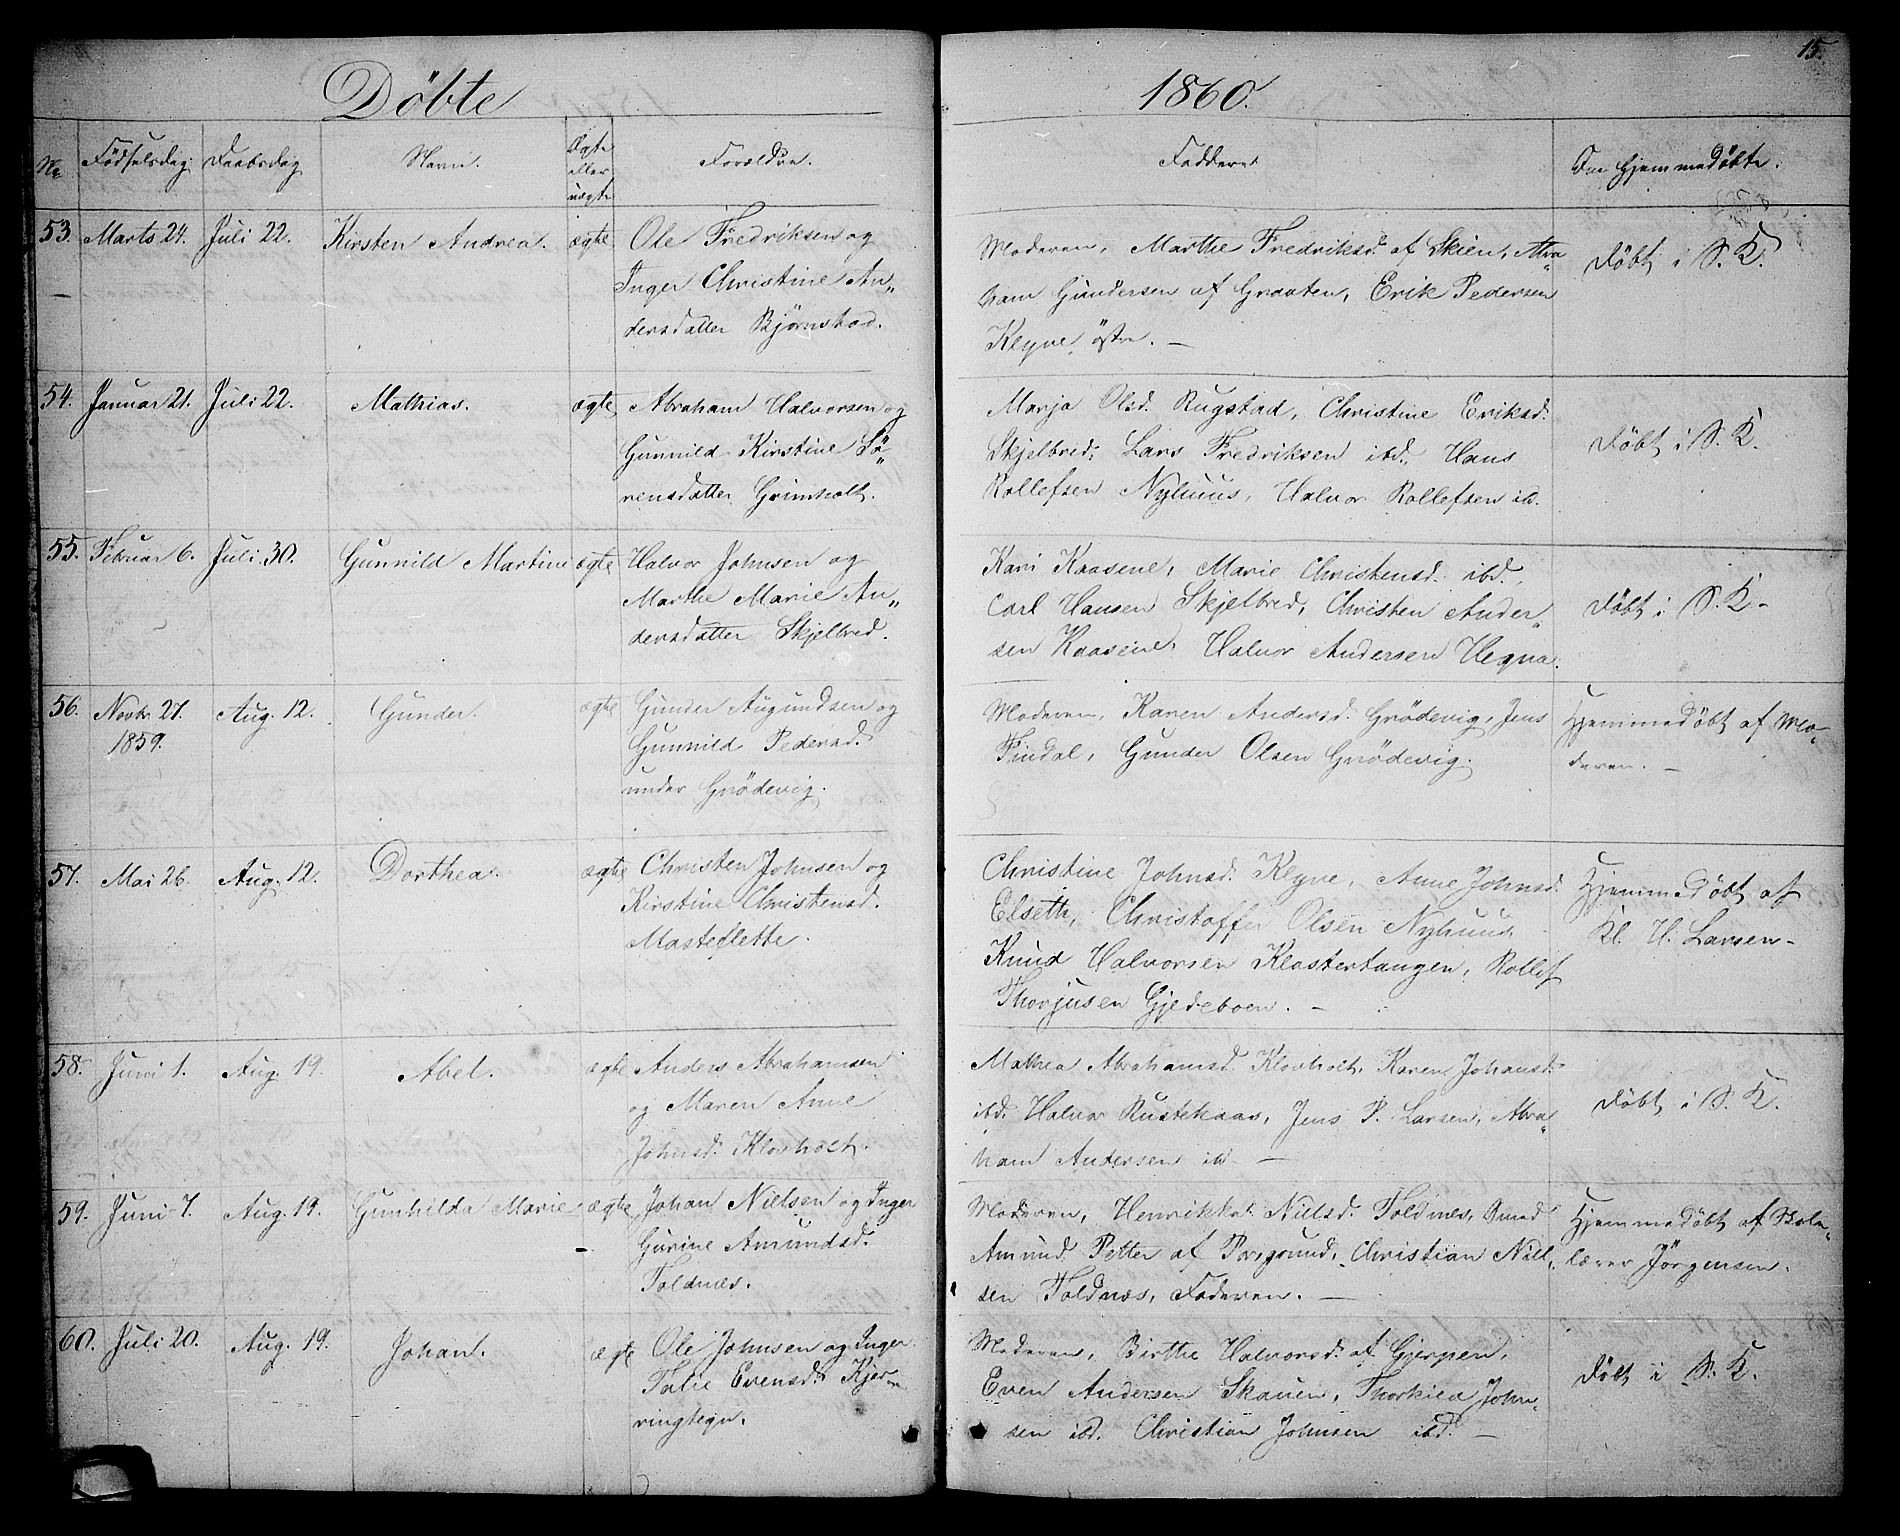 15.
Döbte 1860.
No Födselsdag. Daabsdag Navn. Ægte eller uægte Forældre. Faddere Om hjemmedöbte.
53. Marts 24. Juli 22. Kirsten Andrea. ægte Ole Fredriksen og
Inger Christine An„
dersdatter Bjørnstad.
Moderen, Marthe Fredriksd. af Skien, Abra„
ham Gundersen af Graaten, Erik Pedersen
Klyve östre. —
Döbt i S. K.
54. Januar 21. Juli 22. Mathias. ægte Abraham Halvorsen og
Gunnild Kirstine Sö„
rensdatter Grimholt.
Marja Olsd. Rugstad, Christine Eriksd.
Skjelbred, Lars Fredriksen ibd., Hans
Rollefsen Nyhuus, Halvor Rollefsen ib.
Döbt i S. K.
55. Februar 6. Juli 30. Gunnild Martine ægte Halvor Johnsen og
Marthe Marie An„
dersdatter Skjelbred.
Kari Kaasene, Marie Christensd. ibd.,
Carl Hansen Skjelbred, Christen Ander„
sen Kaasene, Halvor Andersen Hegna.
Döbt i S. K.
56. Novbr. 27. 1859. Aug. 12. Gunder. ægte Gunder Augundsen og
Gunnild Pedersd.
under Grödevig.
Moderen, Karen Andersd. Grödevig, Jens
Findal, Gunder Olsen Grödevig.
Hjemmedöbt af Mo„
deren. —
57. Mai 26. Aug. 12. Dorthea. ægte Christen Johnsen og
Kirstine Christensd.
Masteflette.
Christine Johnsd. Klyve, Anne Johnsd.
Elseth, Christoffer Olsen Nyhuus,
Knud Halvorsen Klostertangen, Rollef
Thorjusen Gjedeboen. —
Hjemmedöbt af
Kl. H. Larsen —
58. Juni 1. Aug. 19. Abel. ægte Anders Abrahamsen
og Maren Anne
Johnsd. Klovholt.
Mathea Abrahamsd. Klovholt, Karen Johansd.
ibd. Halvor Rustekaas, Jens P. Larsen, Abra„
ham Andersen ib —
Döbt i S. K.
59. Juni 7. Aug. 19. Gunhilda Marie ægte Johan Nielsen og Inger
Gurine Amundsd.
Toldnæs.
Moderen, Henrikka Nielsd. Toldnæs,
Amund Petter af Porsgrund, Christian Niel„
sen Toldnæs, Faderen. —
Hjemmedöbt af Skole„
lærer Jörgensen.
60. Juli 20. Aug. 19. Johan. ægte Ole Johnsen og Inger
Talie Evensd. Kjer„
ringtegn.
Moderen, Birthe Halvorsd. af Gjerpen,
Even Andersen Skauen, Thorkild John„
sen ibd. Christian Johnsen ibd. —
Döbt i S. K.